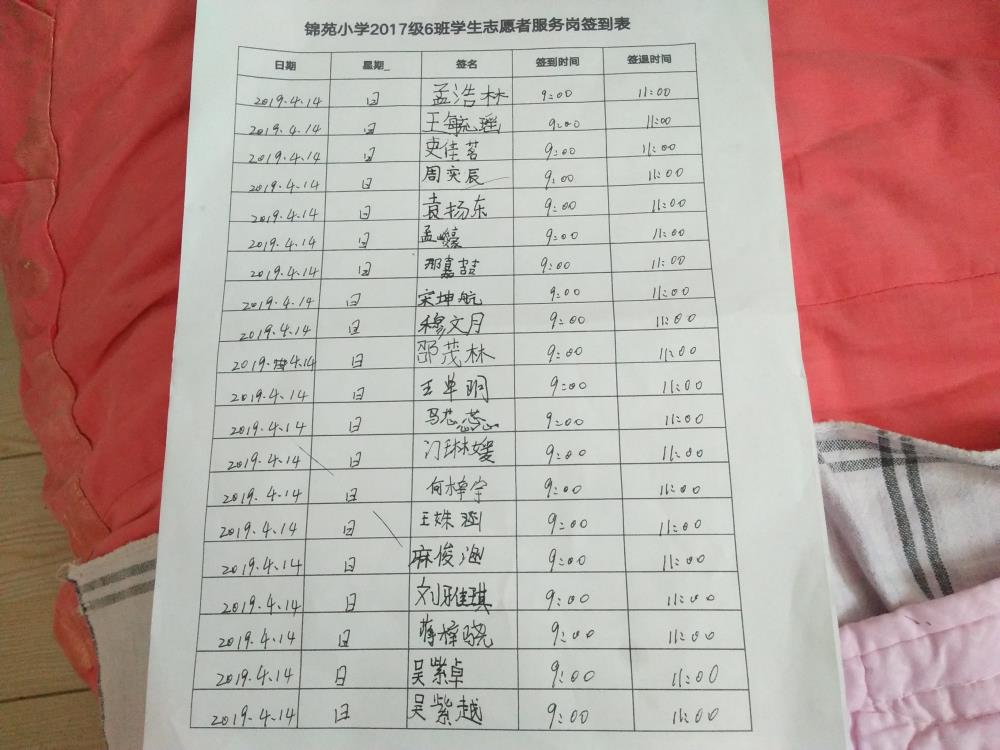 锦苑小学2017级6班学生志愿者服务岗签到表
日期 星期_ 签名 签到时间 签退时间
2019.4.14 日 孟浩林 9:00 11:00
2019.4.14 日 王毓瑶 9:00 11:00
2019.4.14 日 史佳茗 9:00 11:00
2019.4.14 日 周奕辰 9:00 11:00
2019.4.14 日 袁杨东 9:00 11:00
2019.4.14 日 孟 9:00 11:00
2019.4.14 日 那嘉喆 9:00 11:00
2019.4.14 日 宋坤航 9:00 11:00
2019.4.14 日 穆文月 9:00 11:00
2019.4.14 日 邵茂林 9:00 11:00
2019.4.14 日 王单明 9:00 11:00
2019.4.14 日 马芯蕊 9:00 11:00
2019.4.14 日 门琳媛 9:00 11:00
2019.4.14 日 何梓宇 9:00 11:00
2019.4.14 日 王姝涵 9:00 11:00
2019.4.14 日 麻俊涵 9:00 11:00
2019.4.14 日 刘雅琪 9:00 11:00
2019.4.14 日 蒋梓骁 9:00 11:00
2019.4.14 日 吴紫卓 9:00 11:00
2019.4.14 日 吴紫越 9:00 11:00